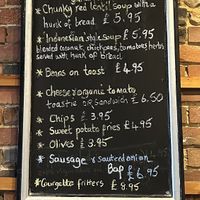 * Chunky red lentil soup with a
hunk of bread. £5.95
* Indonesian style soup £5.95
blended coconut, chickpeas, tomatoes, herbs
served with hunk of bread.
* Beans on toast £4.95
* Cheese, organic tomato
toastie or sandwich £6.50
* Chips £3.95
* Sweet potato fries £4.95
* Olives £3.95
* Sausage & sauteed onion
Bap £6.95
* Courgette fritters £8.95